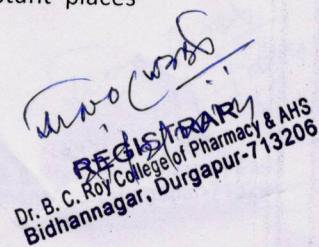 tant places
REGISTRAR
Dr. B. C. Roy College of Pharmacy & AHS
Bidhannagar, Durgapur-713206